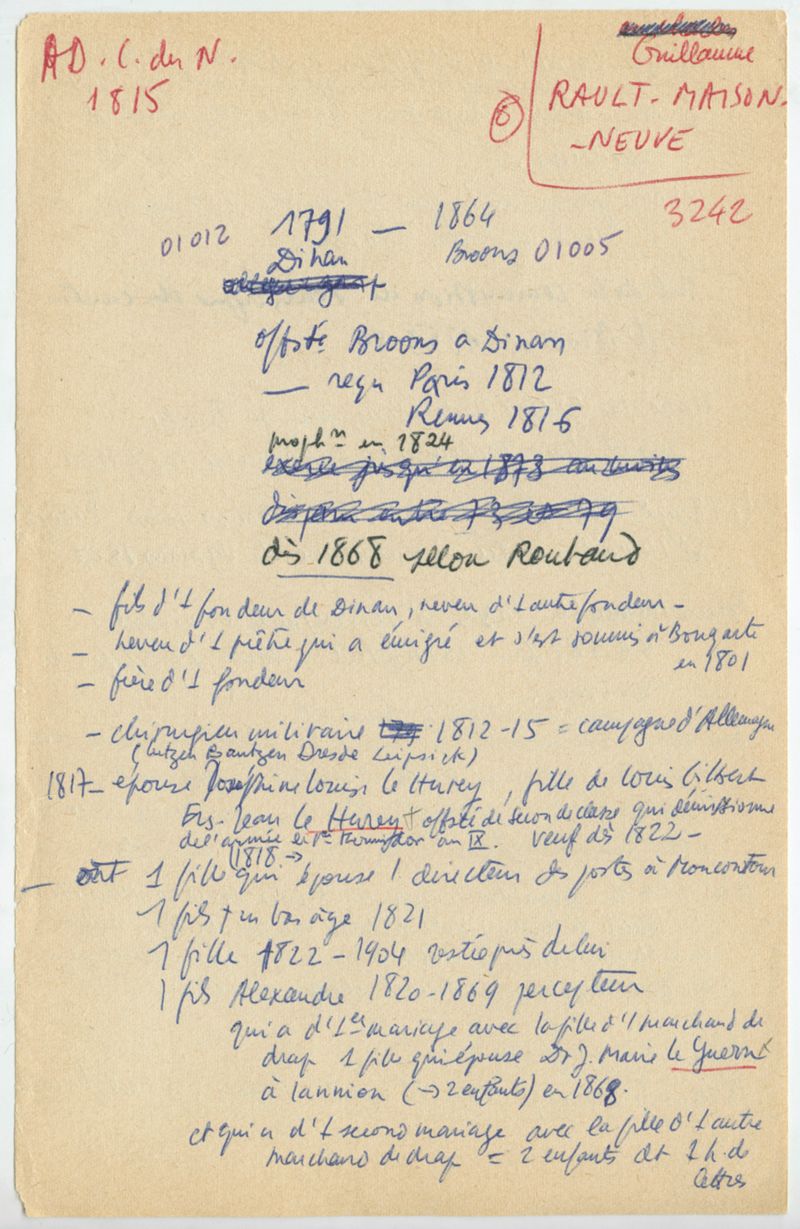 AD. C. du N.
1815
Guillaume
RAULT-MAISON-
-NEUVE
6
3242
01012 1791 — 1864
Dinan Broons 01005
offsté Broons a Dinan
— reçu Paris 1812
Rennes 1816
en 1824
exerce jusqu'en 1873
disparu entre 73 et 79
dès 1868 selon Roubaud
— fils d'1 fondeur de Dinan, neveu d'1 autre fondeur —
— neveu d'1 prêtre qui a émigré et s'est soumis à
en 1801
— frère d'1 fondeur
— chirurgien militaire 1812-15 = campagne d'Allemagne
(Lutzen Bautzen Dresde Leipsick)
1817 — epouse Josephine Louise le Hurey, fille de Louis Gilbert
Frs. Jean le Hurey † offsté de seconde classe qui démissionne
de l'armée le 1er an IX. veuf dès 1822 —
1818 →
— 1 fille qui épouse 1 directeur des postes à Moncontour
1 fils † en bas âge 1821
1 fille 1822 - 1904 restée près de lui
1 fils Alexandre 1820-1869 percepteur
qui a d'1er mariage avec la fille d'1 marchand de
drap 1 fille qui épouse Dr J. Marie le
à Lannion (→ 2 enfants) en 1868.
et qui a d'1 second mariage avec la fille d'1 autre
marchand de drap = 2 enfants dt 1 h. de
lettres